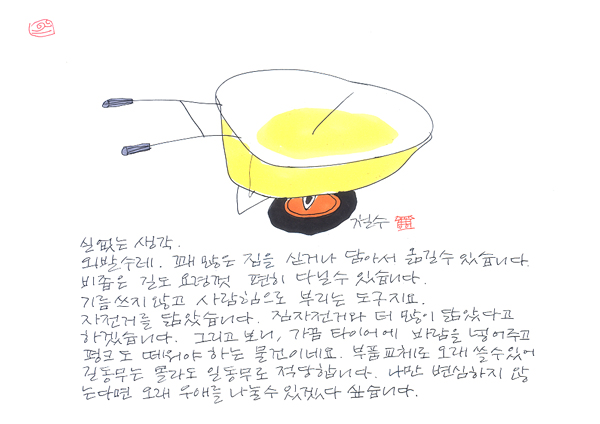 철수
실없는 생각.
외발수레. 꽤 많은 짐을 싣거나 담아서 옮길수 있습니다.
비좁은 길도 요령껏 편히 다닐수 있습니다.
기름쓰지 않고 사람힘으로 부리는 도구지요.
자전거를 닮았습니다. 짐자전거와 더 많이 닮았다고
하겠습니다. 그리고 보니, 가끔 타이어에 바람을 넣어주고
펑크도 때워야 하는 물건이네요. 부품교체로 오래 쓸수있어
길동무는 몰라도 일동무로 적당합니다. 나만 변심하지 않
는다면 오래 우애를 나눌수 있겠다 싶습니다.